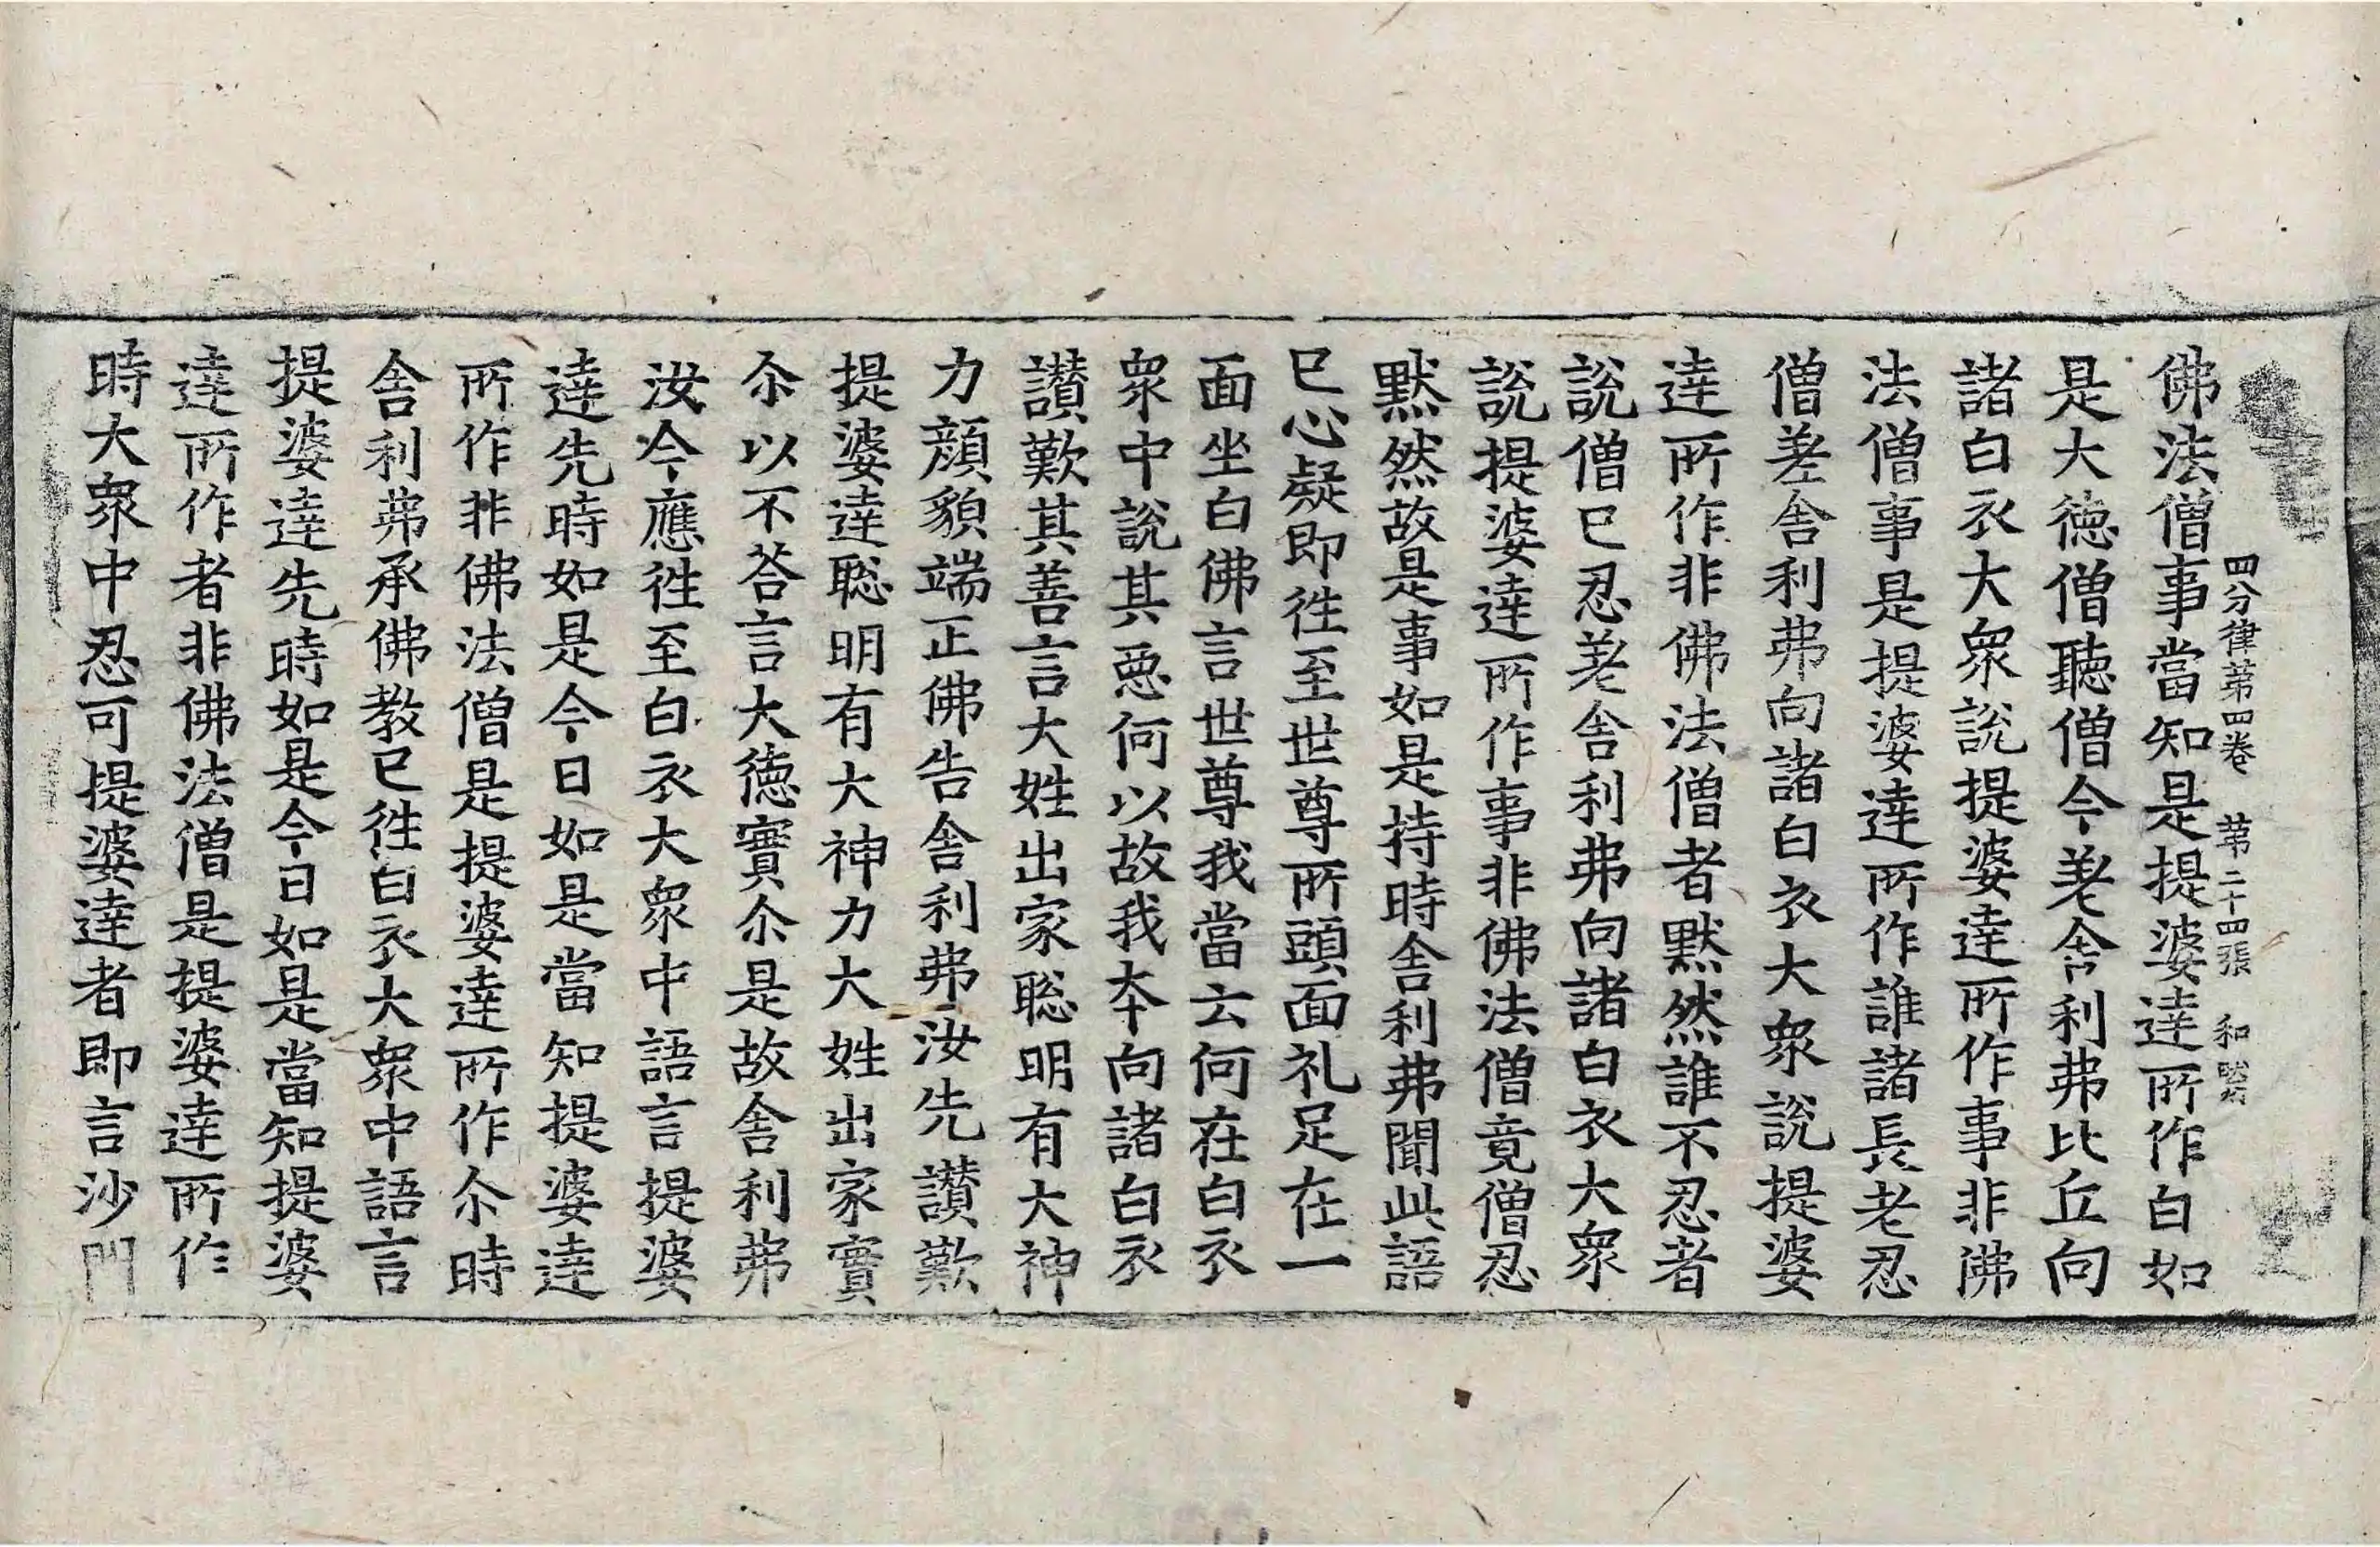 四分律苐四卷　苐二十四張　和
佛法僧事當知是提婆達所作白如
是大德僧聽僧今差舍利弗比丘向
諸白衣大衆說提婆達所作事非佛
法僧事是提婆達所作誰諸長老忍
僧差舍利弗向諸白衣大衆說提婆
達所作非佛法僧者黙然誰不忍者
說僧已忍差舍利弗向諸白衣大衆
說提婆達所作事非佛法僧竟僧忍
黙然故是事如是持時舍利弗聞此語
已心疑即徃至世尊所頭面礼足在一
面坐白佛言世尊我當云何在白衣
衆中說其惡何以故我夲向諸白衣
讃歎其善言大姓出家聡明有大神
力顔貌端正佛告舍利弗汝先讃歎
提婆達聡明有大神力大姓出家實
尒以不荅言大德實尒是故舍利弗
汝今應徃至白衣大衆中語言提婆
達先時如是今日如是當知提婆達
所作非佛法僧是提婆達所作尒時
舍利弗承佛教已徃白衣大衆中語言
提婆達先時如是今日如是當知提婆
達所作者非佛法僧是提婆達所作
時大衆中忍可提婆達者即言沙門